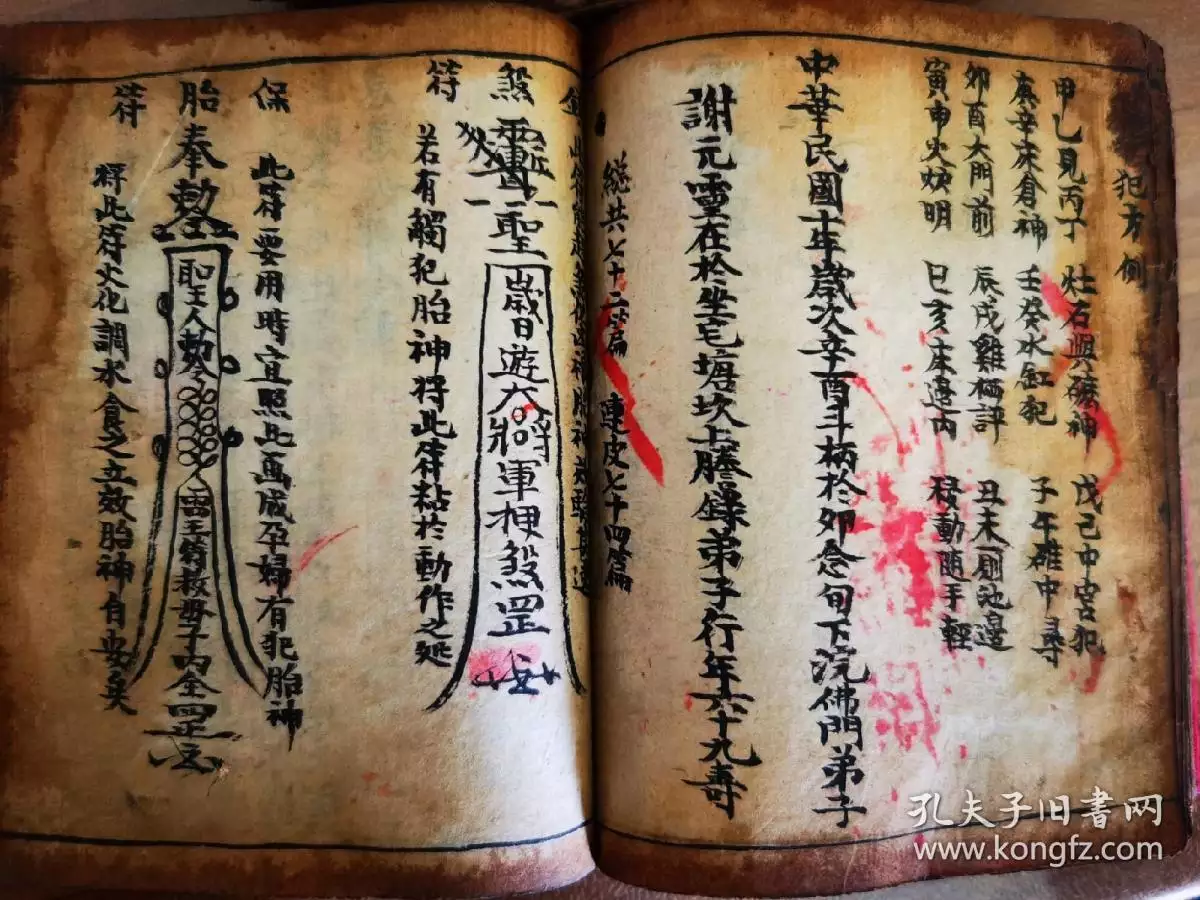 犯方例
甲乙見丙丁 灶石與磨神 戊己中宮犯
庚辛床倉神 壬癸水缸犯 子午碓中尋
卯酉大門前 辰戌雞栖評 丑未廁池邊
寅申火炉明 巳亥床邊內 移動随手輕
中華民國十年歲次辛酉斗柄於卯念旬下浣佛門弟子
謝元靈在於坐宅塘坎上謄錄弟子行年六十九壽
總共七十二篇 連皮七十四篇
煞
聖
歲日遊大將軍梗煞罡
符
若有觸犯胎神将此符粘於動作之処
保
此符要用時宜照此画成孕婦有犯胎神
胎
奉勅
聖人勅令
符
将此符火化調水食之立效胎神自安矣
孔夫子旧書网
www.kongfz.com